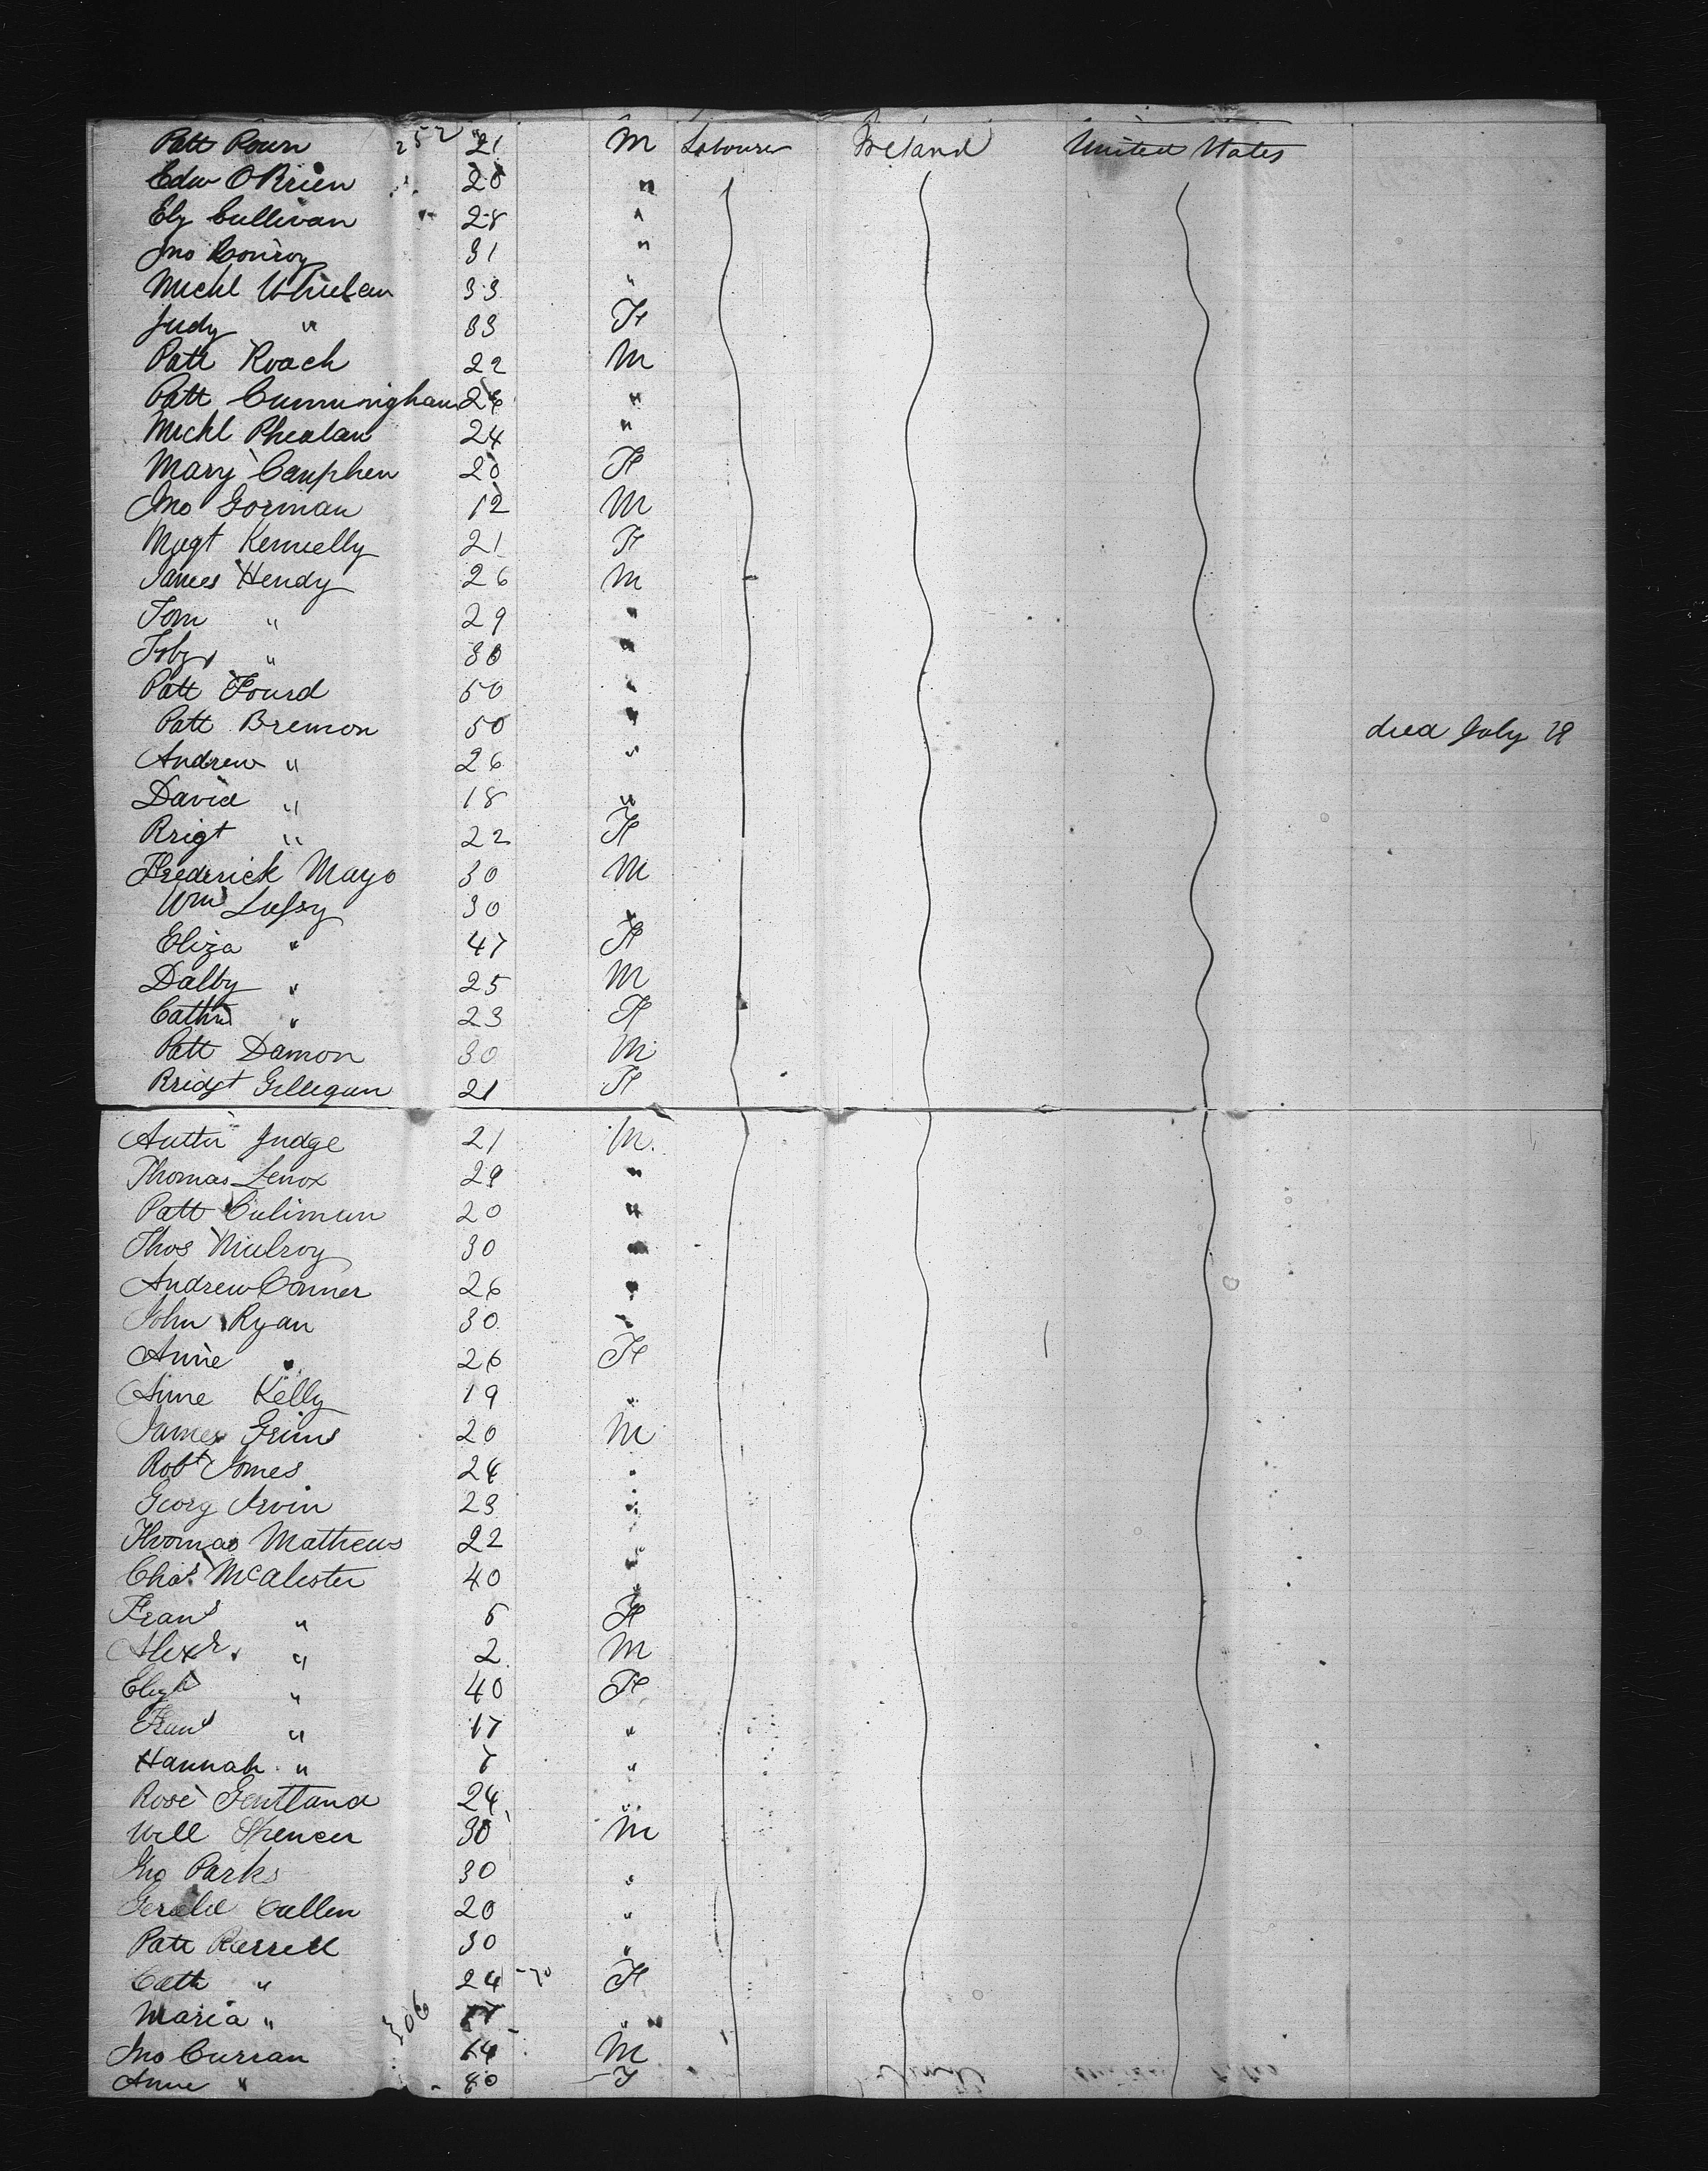 Patt Pourn 252 21 M Labourer Ireland United States
Edw O'Brien 20 "
Ely Cullivan 28 "
Jno Conroy 31 "
Michl Whielan 33 "
Judy " 33 F
Patt Roach 22 M
Patt Cunningham 26 "
Michl Phealan 24 "
Mary Cauphen 20 F
Jno Gorman 12 M
Magt Kennelly 21 F
James Hendy 26 M
Tom " 29 "
" 30 "
Patt Fourd 50 "
Patt Brennon 50 " died July 29
Andrew " 26 "
David " 18 "
Brigt " 22 F
Frederick Mayo 30 M
Wm 30 "
Eliza " 47 F
Dalby " 25 M
Cathn " 23 F
Patt Damon 30 M
Bridgt Gellegan 21 F
Judge 21 M.
Thomas Lenox 29 "
Patt Culiman 20 "
Thos Mulroy 30 "
Andrew Conner 26 "
John Ryan 30 "
Anne " 26 F
Anne Kelly 19 "
James Grims 20 M
Robt Jomes 24 "
Georg Irvin 23 "
Thomas Mathews 22 "
Chas McAlister 40 "
Frans " 5 F
Alexr. " 2 M
Elizh " 40 F
Frans " 17 "
Hannah " 7 "
Rose Gentland 24 "
Will Spencer 30 M
Jno Parks 30 "
Gerald Cullen 20 "
Patt Rerrell 30 "
Cath " 24 F
Maria " 306 "
Jno Curran 14 M
Anne " 80 F